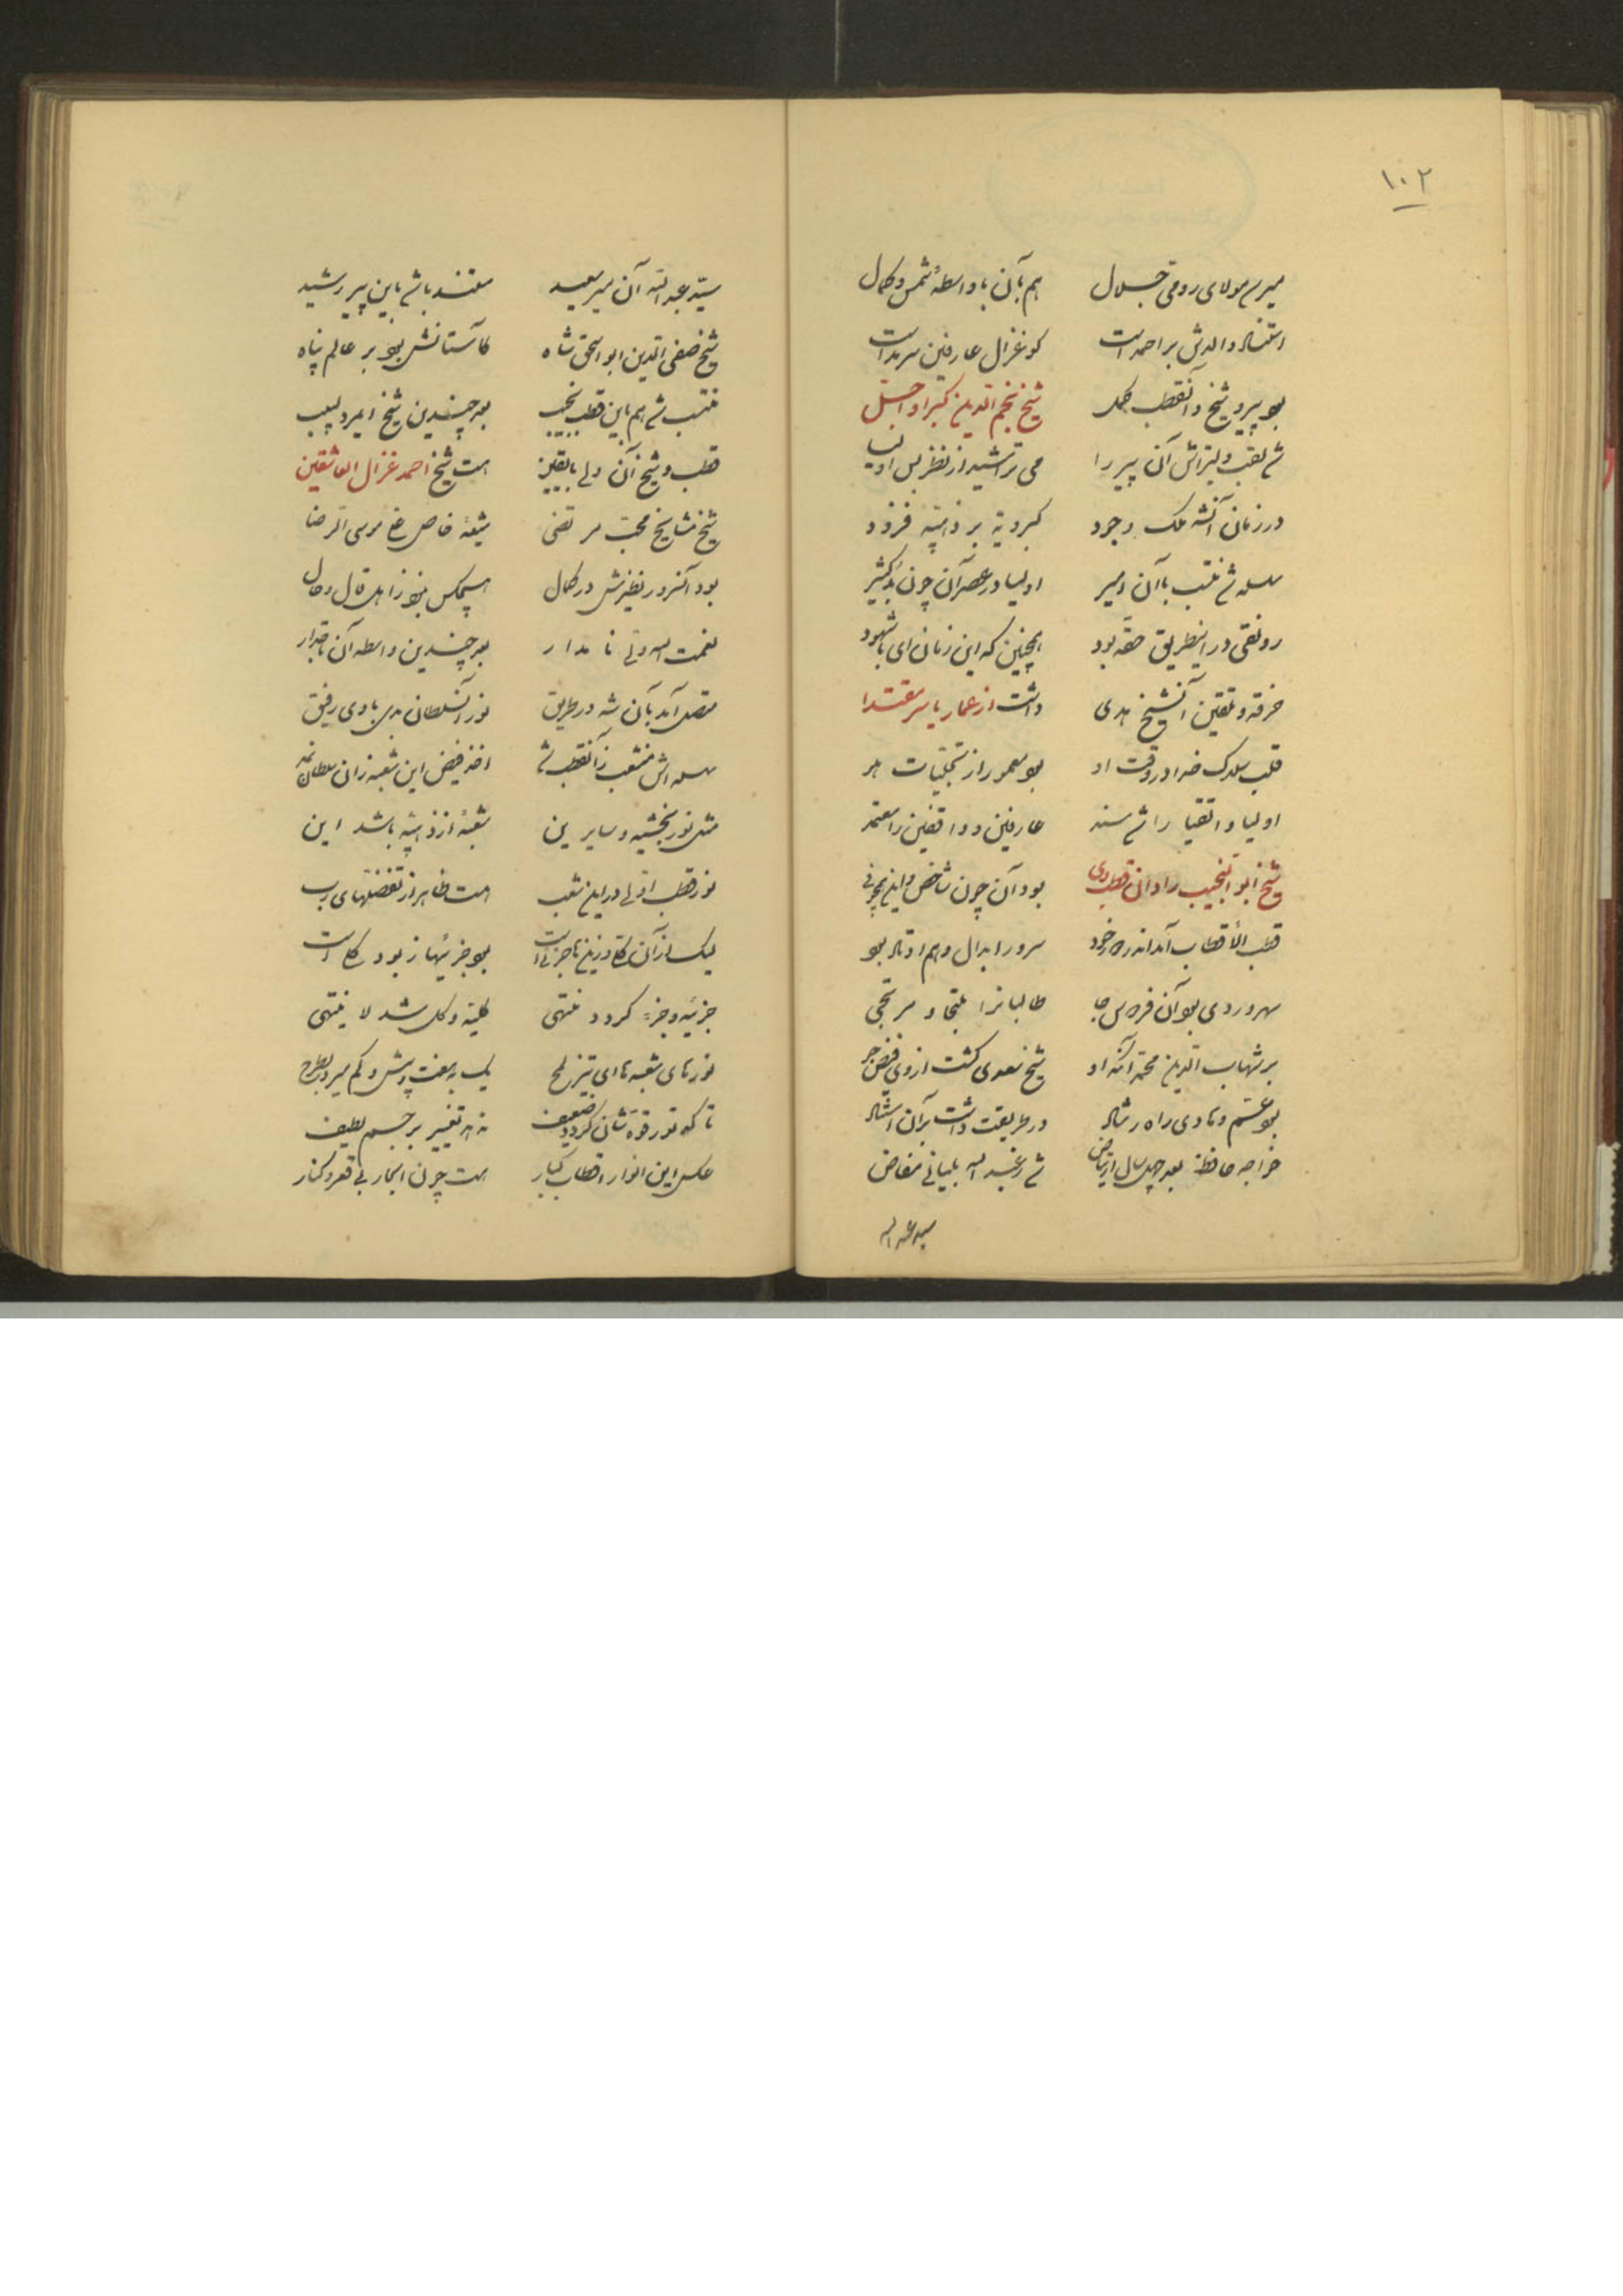 ۱۰۲
میرسد مولای رومی جلال هم بآن با واسطهٔ شمس و کمال
استناد والدش بر احمد است کو غزال عارفین سرمد است
بود پیرو شیخ و آنقطب کمل شیخ نجم الدین کبرا و اجل
شد لقب ولیتراش آن پیر را می تراشید از نظر بس اولیا
در زمان آنشه ملک وجود کبرویه بر ذهبیه فزود
سلسله شد منتسب با آن امیر اولیا در عصر آن چون بد کثیر
رونقی در این طریق حقه بود همچنین که این زمان ای با شهود
خرقه و تلقین آنشیخ هدی داشت از عمار یاسر مقتدا
قلب سلاک خدا در وقت او بود معمور از تجلیات هو
اولیا و اتقیا را شد سند عارفین و واقفین را معتمد
شیخ ابو النجیب را دان قطب وی بود آن چون شاخص و این همچو فی
قطب الأقطاب آمد اندر عهد خود سرور ابدال و هم اوتاد بود
سهروردی بود آن فرخنده جا طالبانرا ملتجا و مرتجی
بر شهاب الدین محمد آنکه او شیخ سعدی گشت از وی فیض جو
بود عم و هادی راه رشاد در طریقت داشت بر آن استناد
خواجه حافظ بعد چهل سال ارتیاض شد ز عبد الله بلیانی مفاض
سید عبد الله
سیّد عبد الله آن میر سعید مستند باشد باین پیر رشید
شیخ صفی الدین ابو اسحق شاه کآستانش بود بر عالم پناه
منتسب شد هم باین قطب نجیب بعد چندین شیخ ای مرد لبیب
قطب و شیخ آن ولی بالیقین هست شیخ احمد غزال العاشقین
شیخ مشایخ محبّ مرتضی شیعهٔ خاص علی موسی الرضا
بود آنسرور نظیرش در کمال هیچکس نبود ز اهل قال و حال
نعمت الله ولی نامدار بعد چندین واسطه آن تاجدار
متصل آمد بآن شه در طریق نور آنسلطان بدی با وی رفیق
سلسله اش منشعب ز آنقطب شد اخذ فیض این شعبه زان سلطان نمود
مثل نوربخشیه و سایرین شعبهٔ از ذهبیه باشد این
نور قطب اولی در این شعب هست ظاهر از تفضلهای رب
لیک از آن کلی و زین ها جزئی است بود جزئیها ز بود کلی است
جزئیه و جزء گردد منتهی کلیه و کل شد لا ینتهی
نورهای شعبه ها ای تیز لمح یک به هفت و بیش و کم میدد بطرح
تا که نور قوه شان گردد ضعیف نه به تغییر بر جسم لطیف
عکس این انوار اقطاب کبار هست چون ابحار بی قعر و کنار